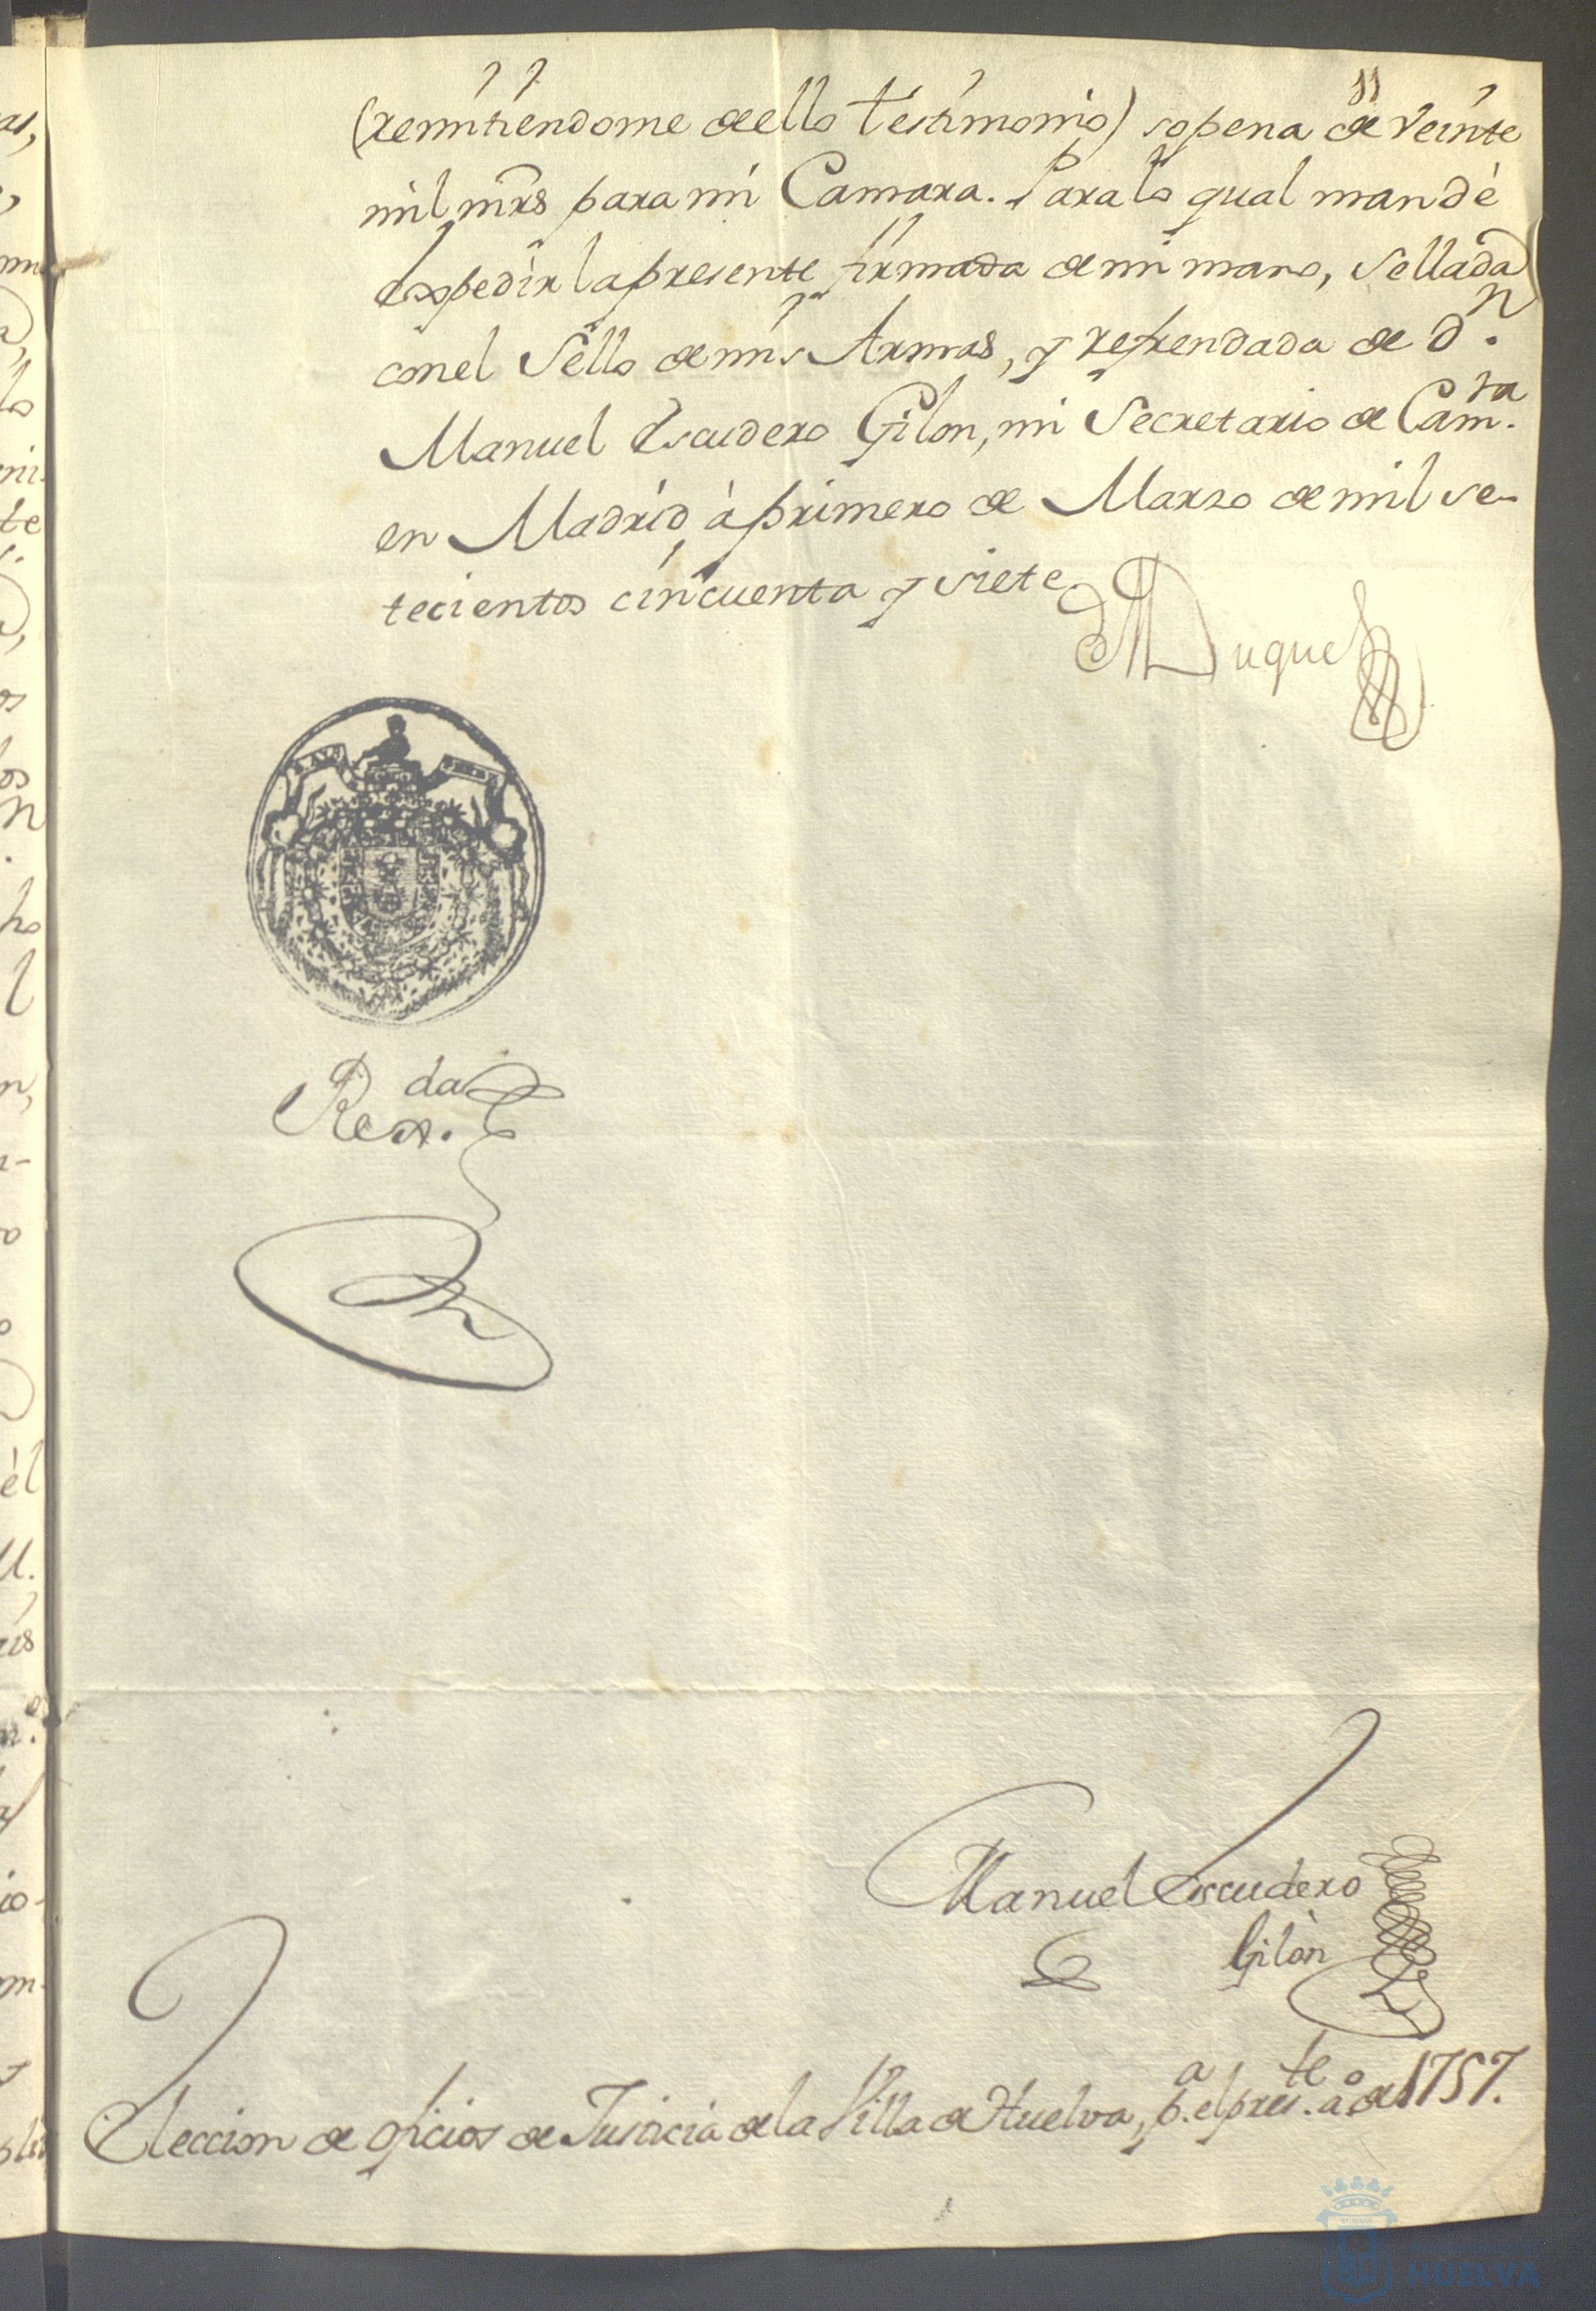 11
(remitiendome dello testimonio) sopena de veinte
mil mrs para mi Camara. Para lo qual mandè
expedir la presente firmada de mi mano, Sellada
con el Sello de mis Armas, y refrendada de Dn.
Manuel Escudero Gilon, mi Secretario de Camra.
en Madrid à primero de Marzo de mil se-
tecientos cincuenta y siete
El Duque
Rexda.
Manuel Escudero
Gilòn
Eleccion de oficios de Justicia de la Villa de Huelva, pa. el preste. ao. de 1757.
HUELVA